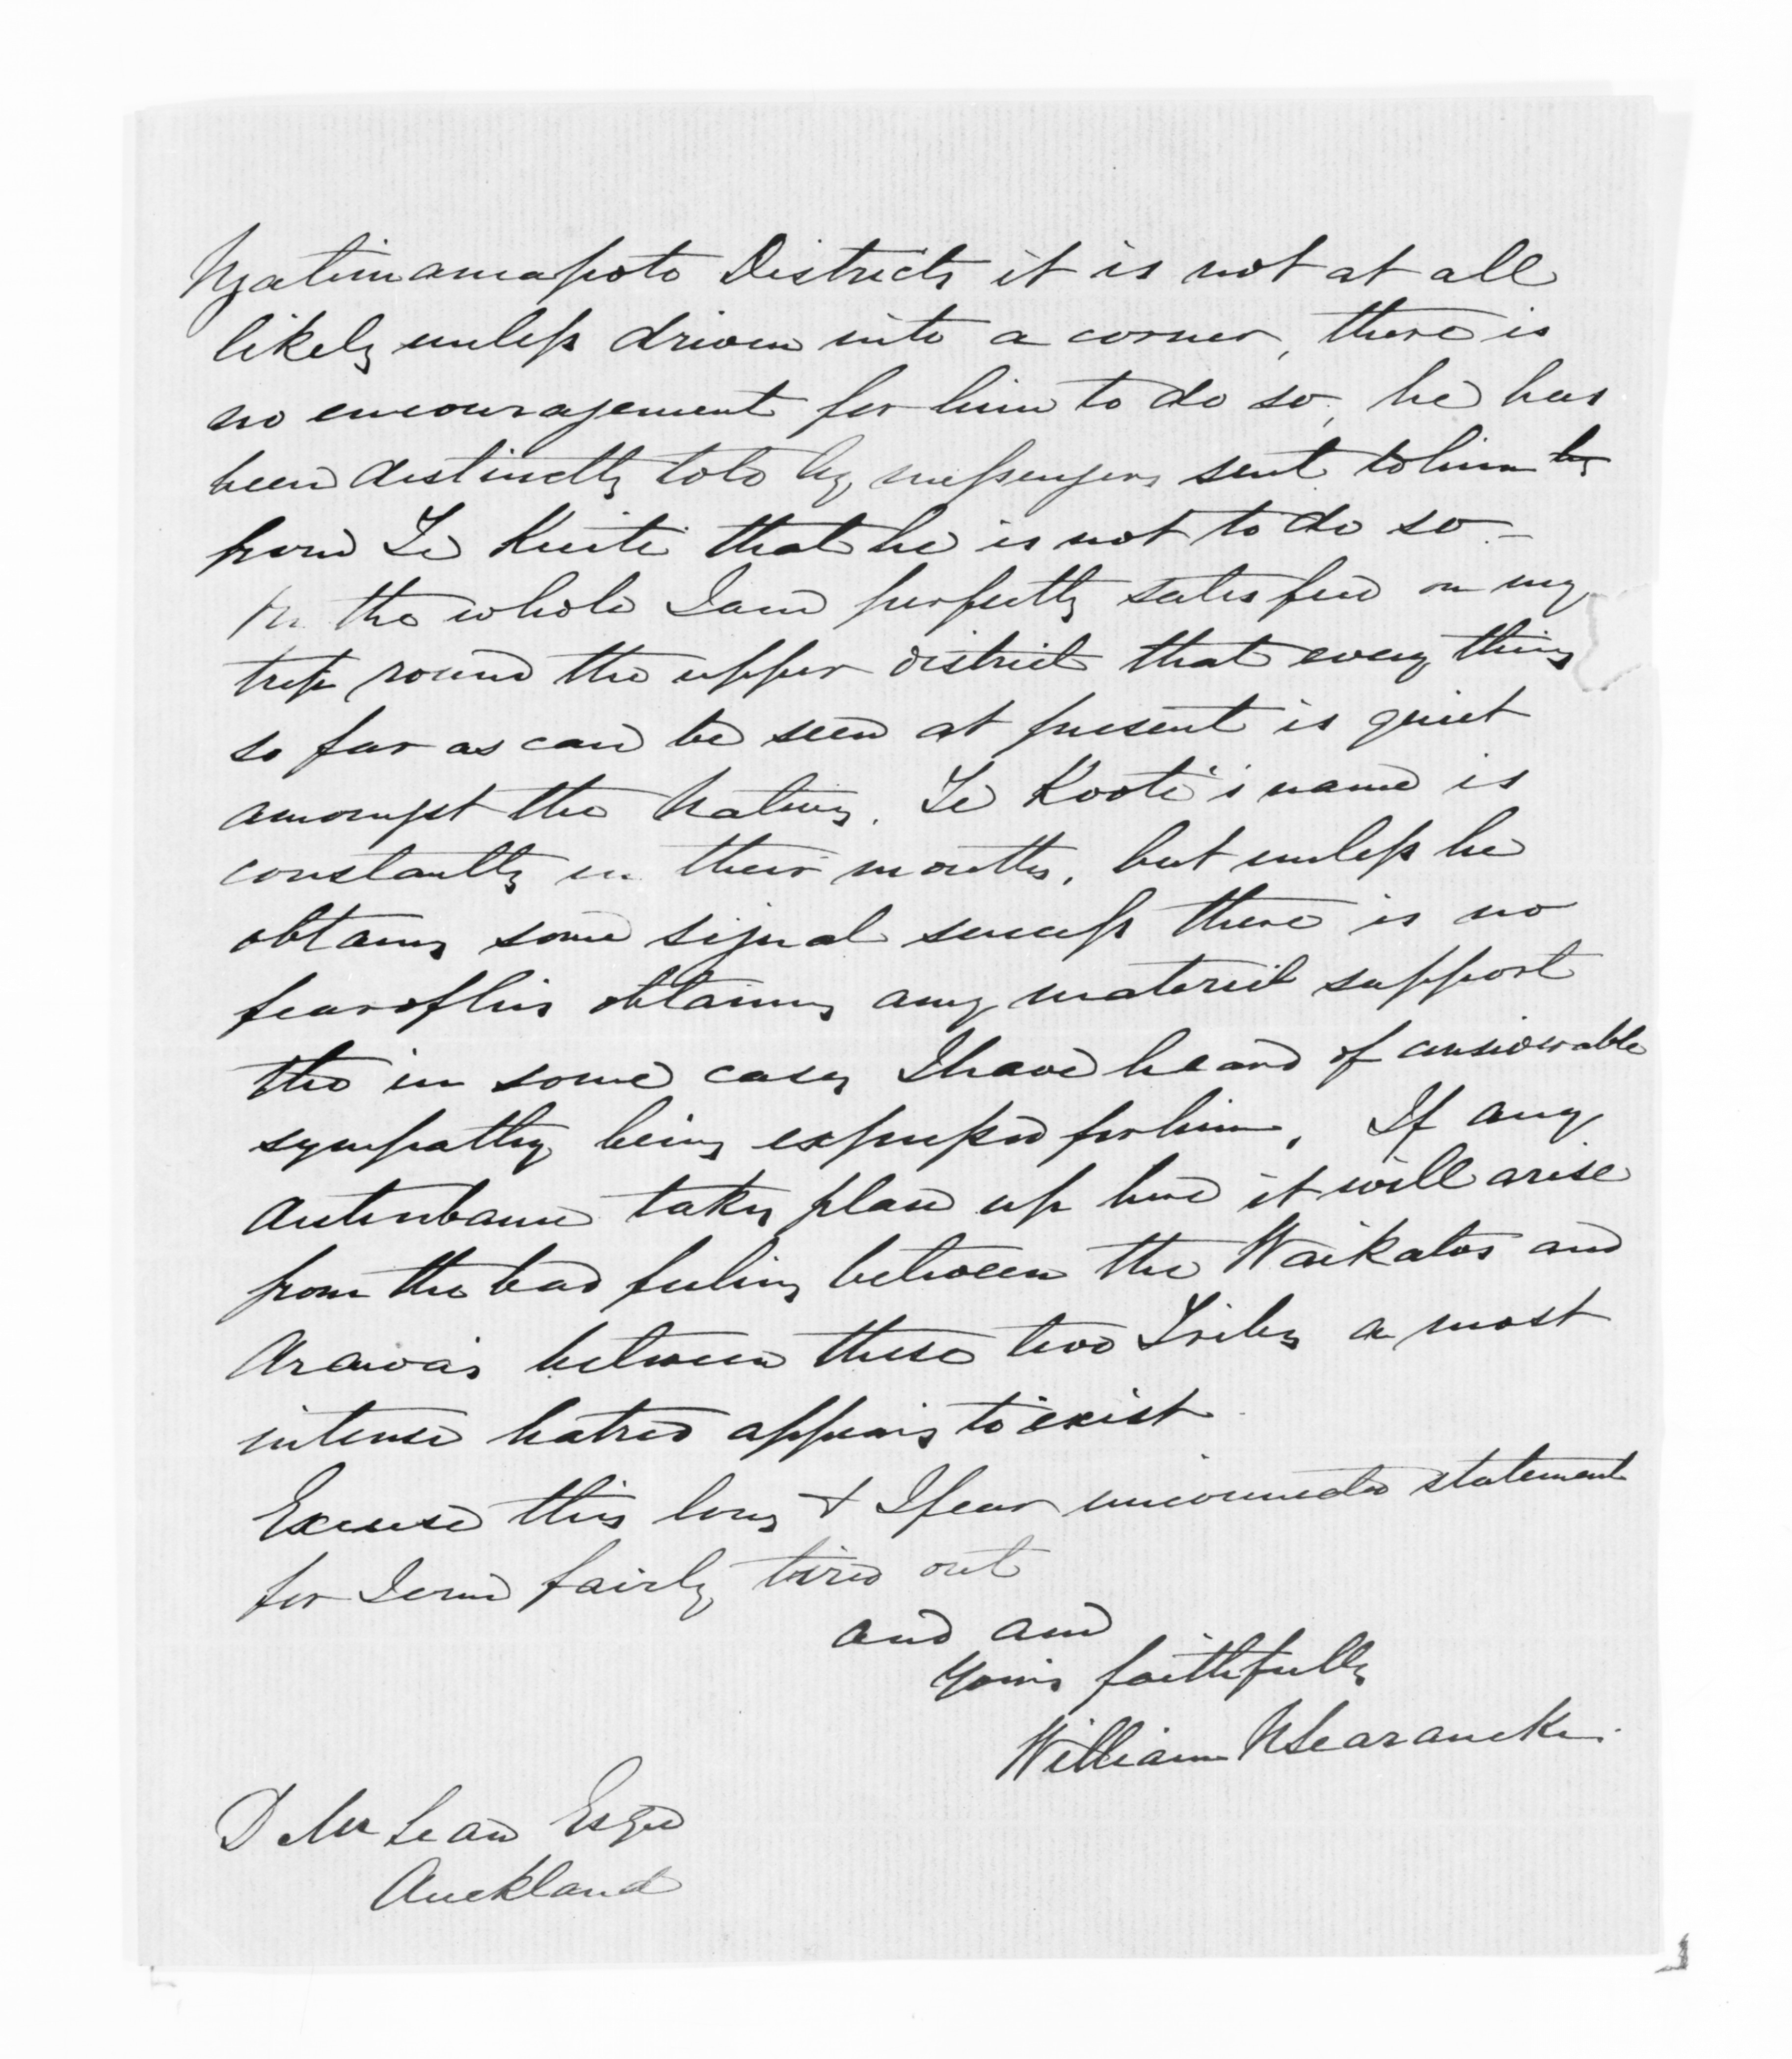 Ngatimaniapoto Districts it is not at all
likely unless driven into a corner, there is
no encouragement for him to do so, he has
been distinctly told by messengers sent to him by
from Te Kuiti that he is not to do so. –
On the whole I am perfectly satisfied on my
trip round the upper district that every thing
so far as can be seen at present is quiet
amongst the Natives. Te Kooti's name is
constantly in their mouths, but unless he
obtains some signal success there is no
fear of his obtaining any material support
tho in some cases I have heard of considerable
sympathy being expressed for him. If any
disturbance takes place up here it will arise
from the bad feeling between the Waikatos and
Arawa's between these two Tribes a most
intense hatred appears to exist.
Excuse this long & I fear unconnected statement
for I am fairly tired out
and am
Yours faithfully
William N Searancke.
D McLean Esqre
Auckland